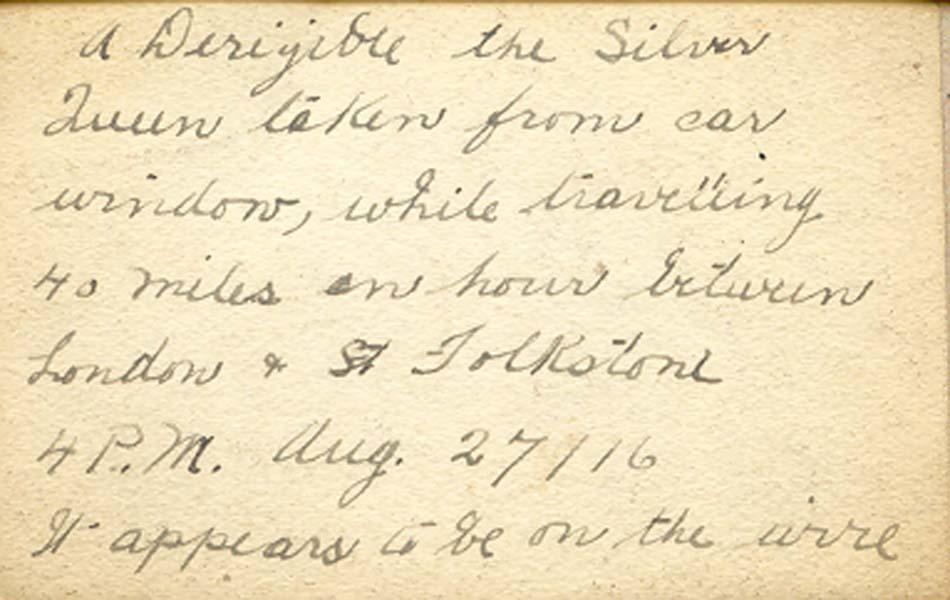 A Derigible the Silver
Queen taken from car
window, while travelling
40 miles an hour between
London & St Folkstone
4 P.M. Aug. 27/16
It appears to be on the wire